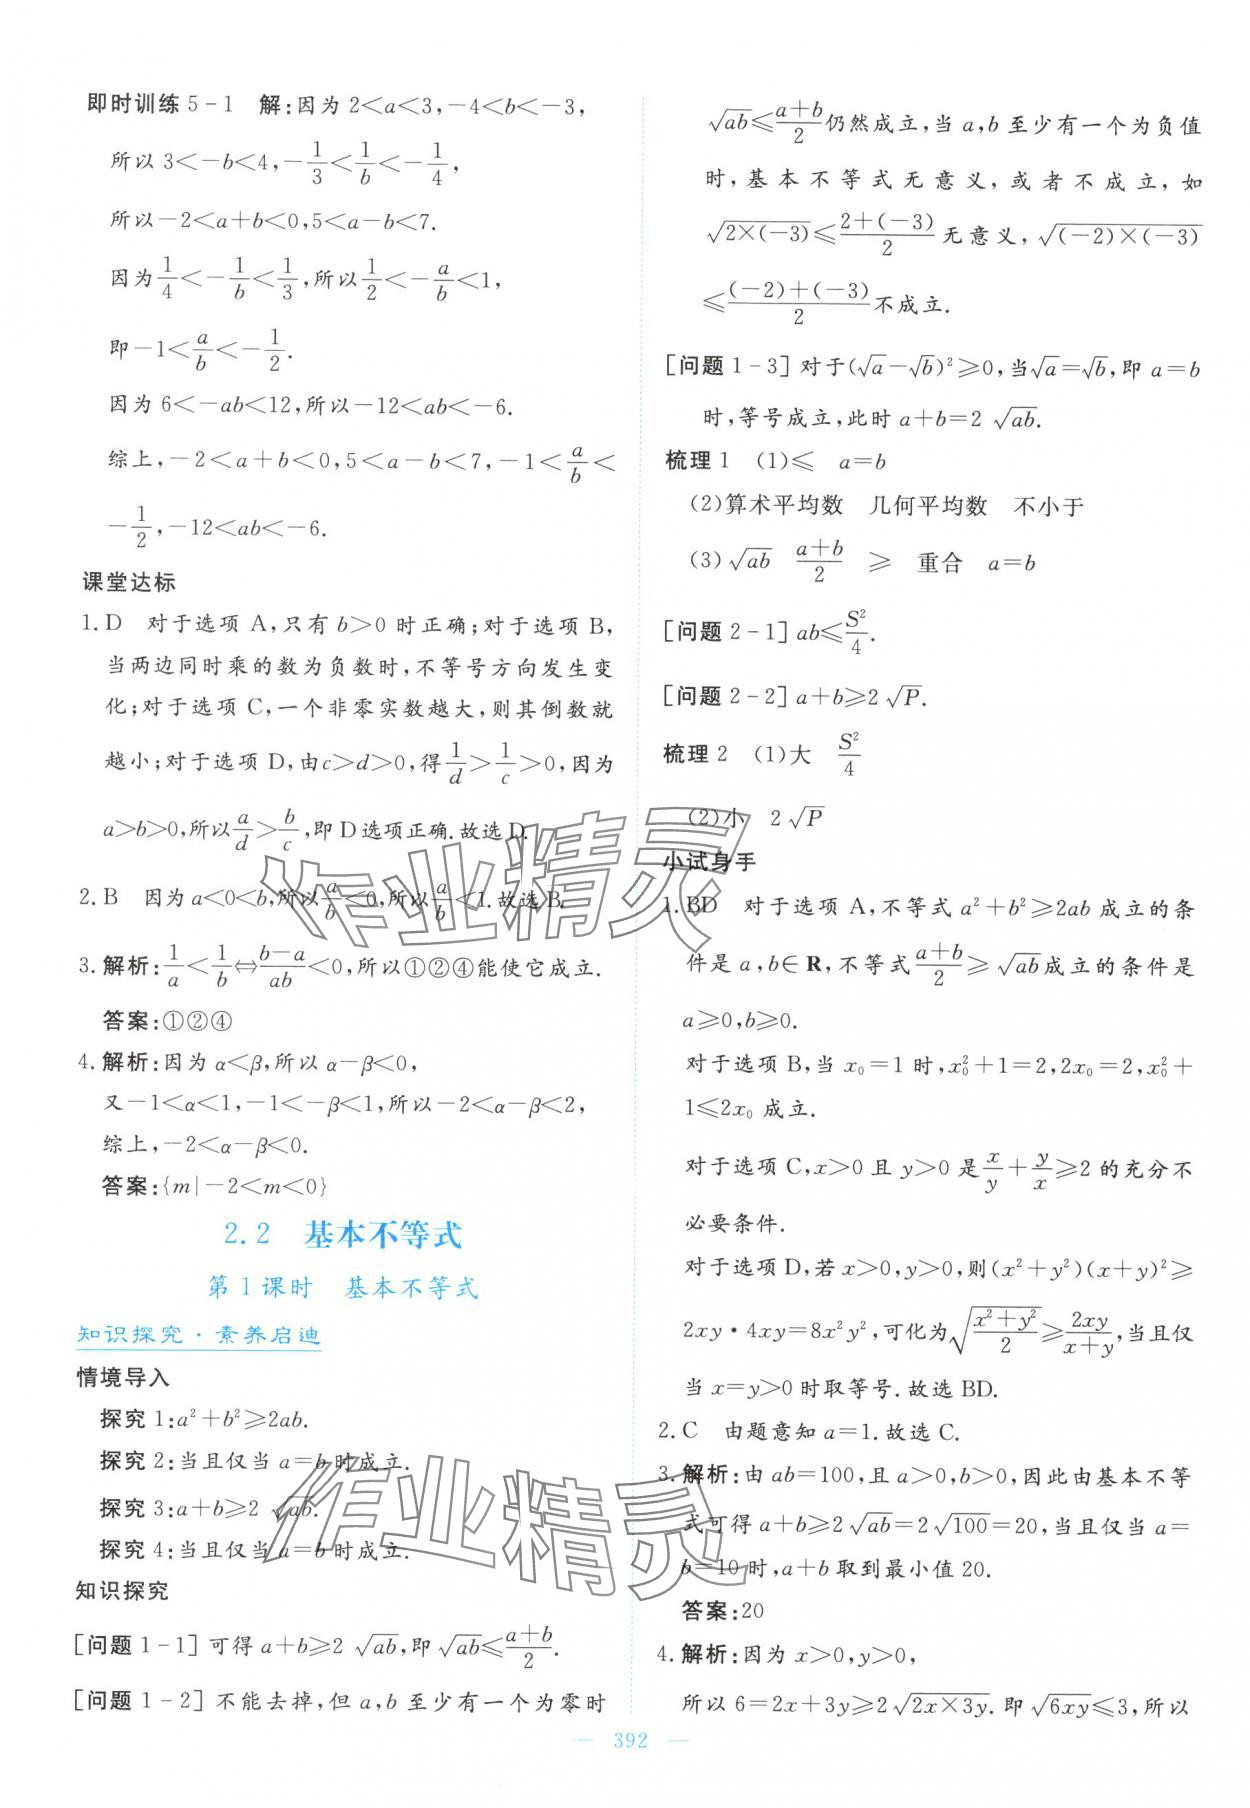 即时训练5-1 解:因为2<a<3,-4<b<-3,
所以3<-b<4,-1/3<1/b<-1/4,
所以-2<a+b<0,5<a-b<7.
因为1/4<-1/b<1/3,所以1/2<-a/b<1,
即-1<a/b<-1/2.
因为6<-ab<12,所以-12<ab<-6.
综上,-2<a+b<0,5<a-b<7,-1<a/b<
-1/2,-12<ab<-6.
课堂达标
1. D 对于选项A,只有b>0时正确;对于选项B,
当两边同时乘的数为负数时,不等号方向发生变
化;对于选项C,一个非零实数越大,则其倒数就
越小;对于选项D,由c>d>0,得1/d>1/c>0,因为
a>b>0,所以a/d>b/c,即D选项正确.故选D.
2. B 因为a<0<b,所以a/b<0,所以a/b<1.故选B.
3. 解析:1/a<1/b⇔(b-a)/ab<0,所以①②④能使它成立.
答案:①②④
4. 解析:因为α<β,所以α-β<0,
又-1<α<1,-1<-β<1,所以-2<α-β<2,
综上,-2<α-β<0.
答案:{m|-2<m<0}
2.2 基本不等式
第1课时 基本不等式
知识探究·素养启迪
情境导入
探究1:a²+b²≥2ab.
探究2:当且仅当a=b时成立.
探究3:a+b≥2√ab.
探究4:当且仅当a=b时成立.
知识探究
[问题1-1] 可得a+b≥2√ab,即√ab≤(a+b)/2.
[问题1-2] 不能去掉,但a,b至少有一个为零时
√ab≤(a+b)/2仍然成立,当a,b至少有一个为负值
时,基本不等式无意义,或者不成立,如
√(2×(-3))≤(2+(-3))/2无意义,√((-2)×(-3))
≤((-2)+(-3))/2不成立.
[问题1-3] 对于(√a-√b)²≥0,当√a=√b,即a=b
时,等号成立,此时a+b=2√ab.
梳理1 (1)≤ a=b
(2)算术平均数 几何平均数 不小于
(3)√ab (a+b)/2 ≥ 重合 a=b
[问题2-1] ab≤S²/4.
[问题2-2] a+b≥2√P.
梳理2 (1)大 S²/4
(2)小 2√P
小试身手
1. BD 对于选项A,不等式a²+b²≥2ab成立的条
件是a,b∈R,不等式(a+b)/2≥√ab成立的条件是
a≥0,b≥0.
对于选项B,当x₀=1时,x₀²+1=2,2x₀=2,x₀²+
1≤2x₀成立.
对于选项C,x>0且y>0是x/y+y/x≥2的充分不
必要条件.
对于选项D,若x>0,y>0,则(x²+y²)(x+y)²≥
2xy·4xy=8x²y²,可化为√((x²+y²)/2)≥2xy/(x+y),当且仅
当x=y>0时取等号.故选BD.
2. C 由题意知a=1.故选C.
3. 解析:由ab=100,且a>0,b>0,因此由基本不等
式可得a+b≥2√ab=2√100=20,当且仅当a=
b=10时,a+b取到最小值20.
答案:20
4. 解析:因为x>0,y>0,
所以6=2x+3y≥2√(2x×3y).即√(6xy)≤3,所以
— 392 —
作业精灵
作业精灵